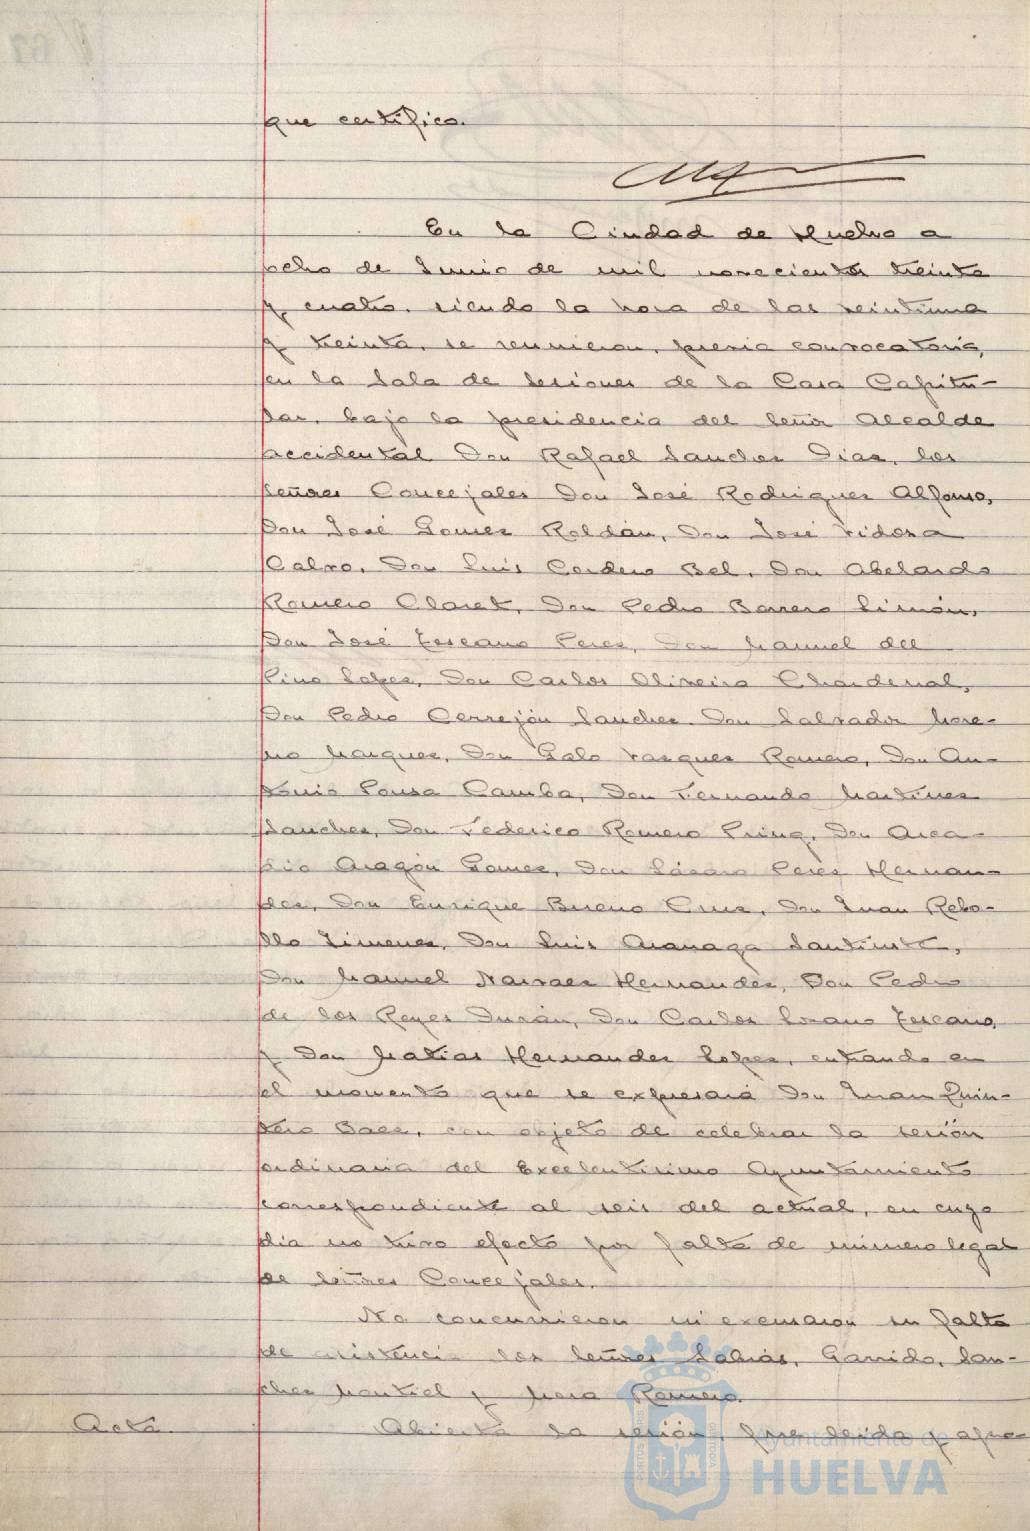 que certifico.
En la Ciudad de Huelva a
ocho de Junio de mil novecientos treinta
y cuatro, siendo la hora de las veintiuna
y treinta, se reunieron, previa convocatoria,
en la Sala de Sesiones de la Casa Capitu-
lar, bajo la presidencia del Señor Alcalde
accidental Don Rafael Sanchez Diaz, los
señores Concejales Don José Rodriguez Alfonso,
Don José Gomez Roldán, Don José Vidosa
Calvo, Don Luis Cordero Bel, Don Abelardo
Romero Claret, Don Pedro Borrero Limón,
Don José Tescano Perez, Don Manuel del
Pino Lopez, Don Carlos Oliveira Chardenal,
Don Pedro Cerrejón Sanchez, Don Salvador More-
no Marquez, Don Galo Vazquez Romero, Don An-
tonio Pousa Camba, Don Fernando Martinez
Sanchez, Don Federico Romero Pring, Don Arca-
dio Aragón Gomez, Don Lázaro Perez Hernan-
dez, Don Enrique Bueno Cruz, Don Juan Rebo-
llo Jimenez, Don Luis Aranaga Santiuste,
Don Manuel Narvaez Hernandez, Don Pedro
de los Reyes Durán, Don Carlos Lozano Tescano,
y Don Matias Hernandez Lopez, entrando en
el momento que se expresará Don Juan Quin-
tero Baez, con objeto de celebrar la sesión
ordinaria del Excelentisimo Ayuntamiento
correspondiente al seis del actual, en cuyo
dia no tuvo efecto por falta de número legal
de Señores Concejales.
No concurrieron ni excusaron su falta
de asistencia los Señores Sabrás, Garrido, San-
chez Montiel y Mora Romero.
Acta. Abierta la sesión, fue leida y apro-
Ayuntamiento de
HUELVA